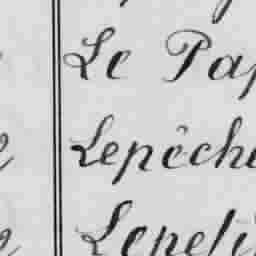 Le Pap
Lepêche
Lepeti